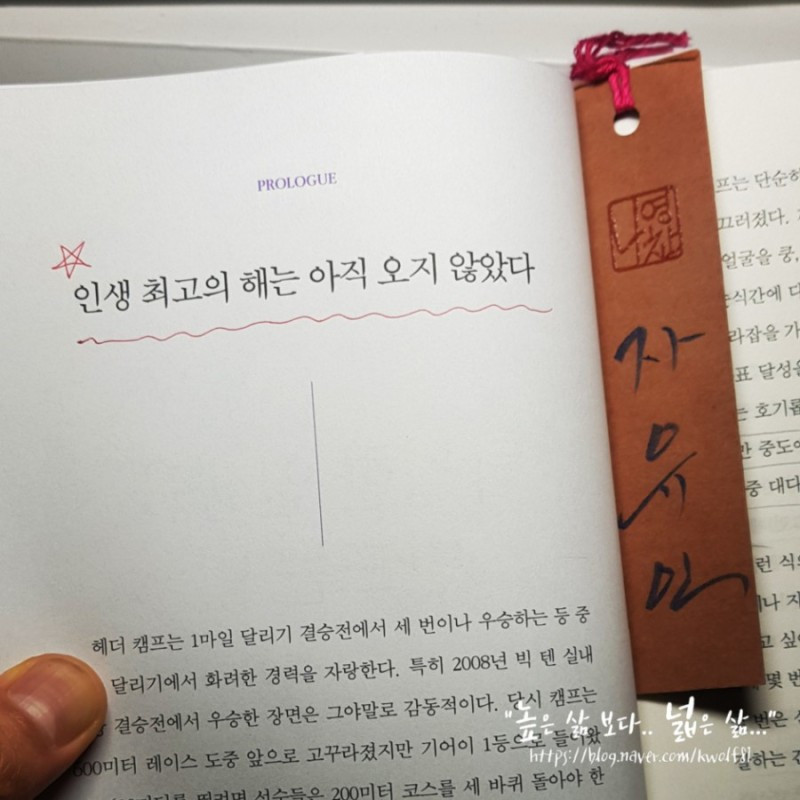 PROLOGUE
인생 최고의 해는 아직 오지 않았다
헤더 캠프는 1마일 달리기 결승전에서 세 번이나 우승하는 등 중
달리기에서 화려한 경력을 자랑한다. 특히 2008년 빅 텐 실내
결승전에서 우승한 장면은 그야말로 감동적이다. 당시 캠프는
600미터 레이스 도중 앞으로 고꾸라졌지만 기어이 1등으로 들어왔
뛰려면 선수들은 200미터 코스를 세 바퀴 돌아야 한
자유인
프는 단순히
끄러졌다.
얼굴을 쿵,
순식간에
라잡을 가
표 달성을
는 호기롭
만 중도에
중 대다
런 식
나 지
고 싶
몇 번
번은
"높은 삶 보다.. 넓은 삶..."
https://blog.naver.com/kwolf81